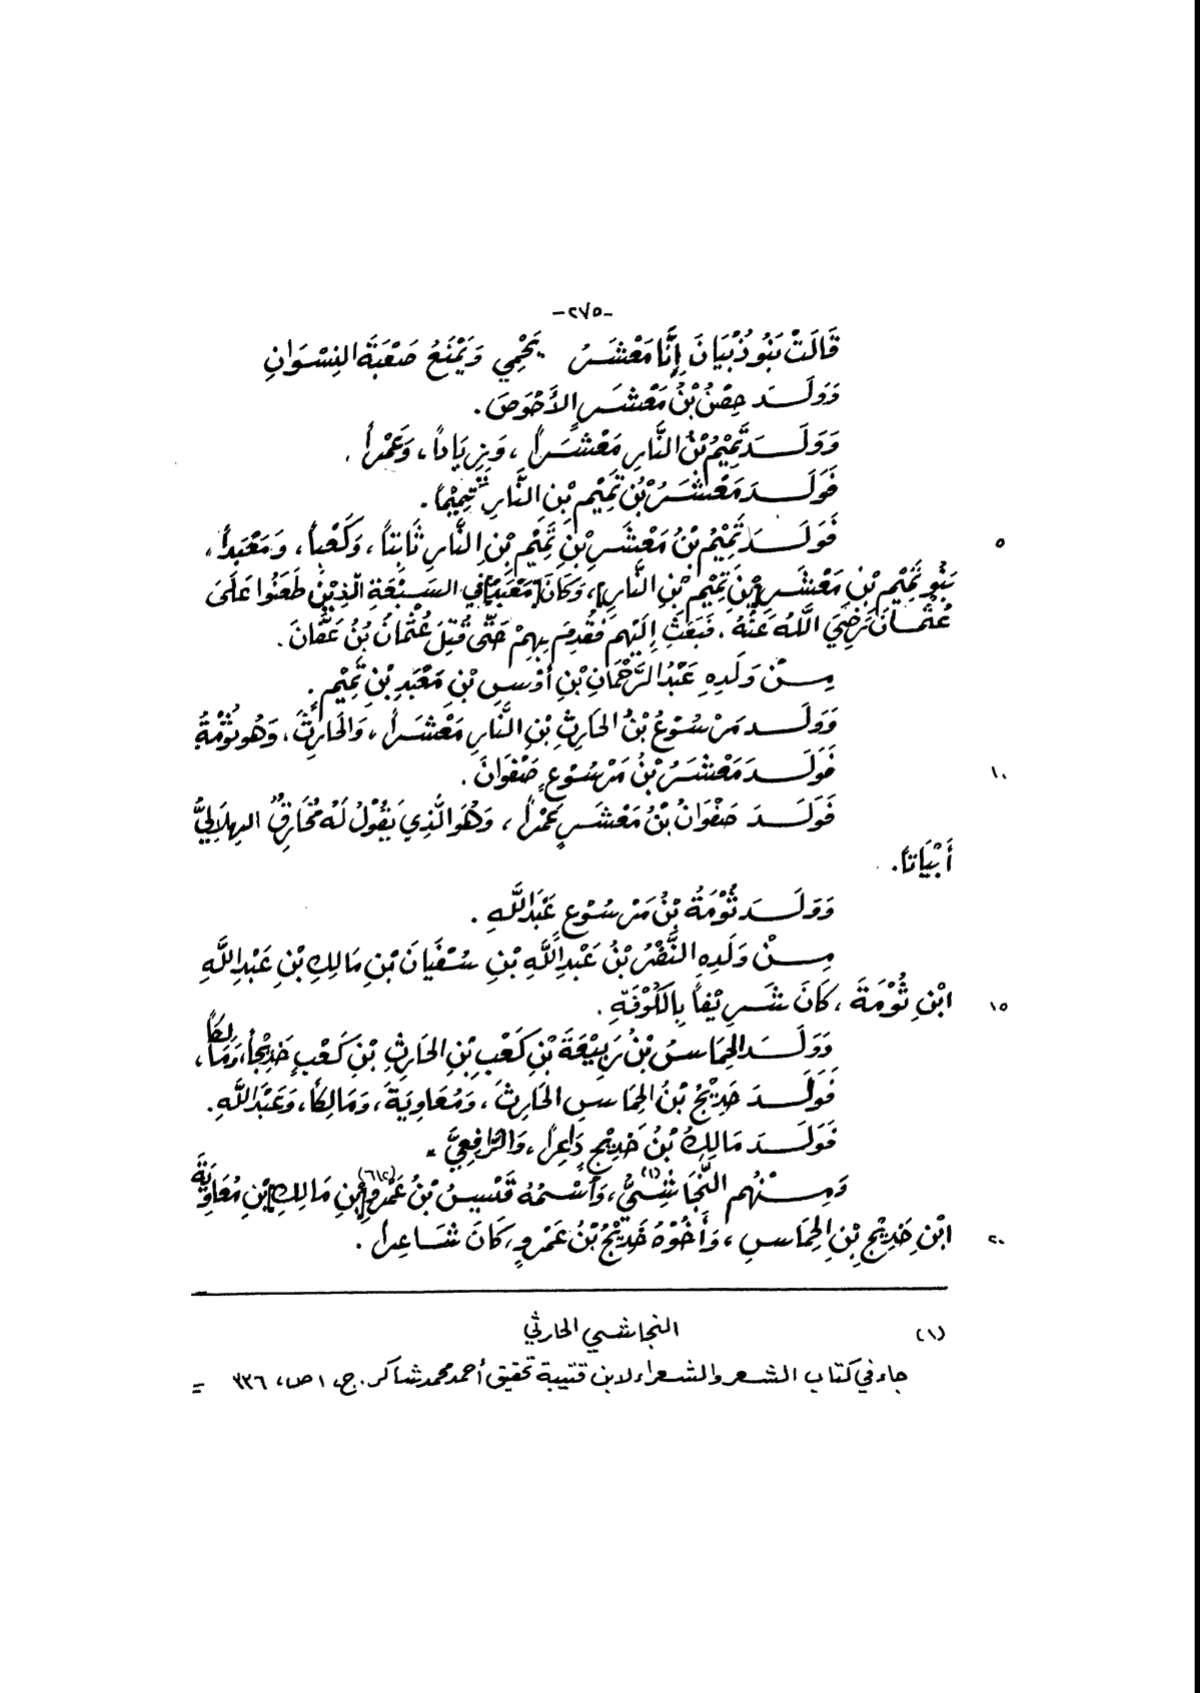 -٢٧٥-
قَالَتْ بَنُو ذُبْيَانَ إِنَّا مَعْشَرُ يَحْمِي وَيَمْنَعُ صَعْبَةَ النِسْوَانِ
وَوَلَدَ حِصْنُ بْنُ مَعْشَرٍ الأَحْوَصَ.
وَوَلَدَ تَمِيْمُ بْنُ النَّارِ مَعْشَرًا، وَزِيَادًا، وَعَمْرًا.
فَوَلَدَ مَعْشَرُ بْنُ تَمِيْمِ بْنِ النَّارِ تَمِيْمًا.
٥ فَوَلَدَ تَمِيْمُ بْنُ مَعْشَرِ بْنِ تَمِيْمِ بْنِ النَّارِ ثَابِتًا، وَكَعْبًا، وَمَعْبَدًا،
بَنُو تَمِيْمِ بْنِ مَعْشَرِ [بْنِ تَمِيْمِ بْنِ النَّارِ]، وَكَانَ [مَعْبَدٌ] فِي السَبْعَةِ الَّذِيْنَ طَعَنُوا عَلَى
عُثْمَانَ رَضِيَ اللَّهُ عَنْهُ، فَبَعَثَ إِلَيْهِم فَقَدِمَ بِهِمْ حَتَّى قُتِلَ عُثْمَانُ بْنُ عَفَّانَ.
مِنْ وَلَدِهِ عَبْدُ الرَّحْمَانِ بْنِ أَوْسِ بْنِ مَعْبَدِ بْنِ تَمِيْمٍ.
وَوَلَدَ مَرْسُوْعُ بْنُ الحَارِثِ بْنِ النَّارِ مَعْشَرًا، وَالحَارِثَ، وَهُوَ ثُوْمَةُ
١٠ فَوَلَدَ مَعْشَرُ بْنُ مَرْسُوْعٍ صَفْوَانَ.
فَوَلَدَ صَفْوَانُ بْنُ مَعْشَرٍ عَمْرًا، وَهُوَ الَّذِي يَقُوْلُ لَهُ مُخَارِقٌ الهِلَالِيُّ
أَبْيَاتًا.
وَوَلَدَ ثُوْمَةُ بْنُ مَرْسُوْعٍ عَبْدَ اللَّهِ.
مِنْ وَلَدِهِ النَّضْرُ بْنُ عَبْدِ اللَّهِ بْنِ سُفْيَانَ بْنِ مَالِكِ بْنِ عَبْدِ اللَّهِ
١٥ ابْنِ ثُوْمَةَ، كَانَ شَرِيْفًا بِالكُوْفَةِ.
وَوَلَدَ الحِمَاسُ بْنُ رَبِيْعَةَ بْنِ كَعْبِ بْنِ الحَارِثِ بْنِ كَعْبٍ خَدِيْجًا، وَمَالِكًا،
فَوَلَدَ خَدِيْجُ بْنُ الحِمَاسِ الحَارِثَ، وَمُعَاوِيَةَ، وَمَالِكًا، وَعَبْدَ اللَّهِ.
فَوَلَدَ مَالِكُ بْنُ خَدِيْجٍ دَاعِرًا، وَالرَّافِعِيَّ.
وَمِنْهُم النَّجَاشِيُّ(١)، وَاسْمُهُ قَيْسُ بْنُ عَمْرِو [بْنِ مَالِكِ] بْنِ مُعَاوِيَةَ
٢٠ ابْنِ خَدِيْجِ بْنِ الحِمَاسِ، وَأَخُوْهُ خَدِيْجُ بْنُ عَمْرٍو، كَانَ شَاعِرًا.
(١) النجاشي الحارثي
جاء في كتاب الشعر والشعراء لابن قتيبة تحقيق أحمد محمد شاكر. ج، ١ ص، ٣٣٦ =